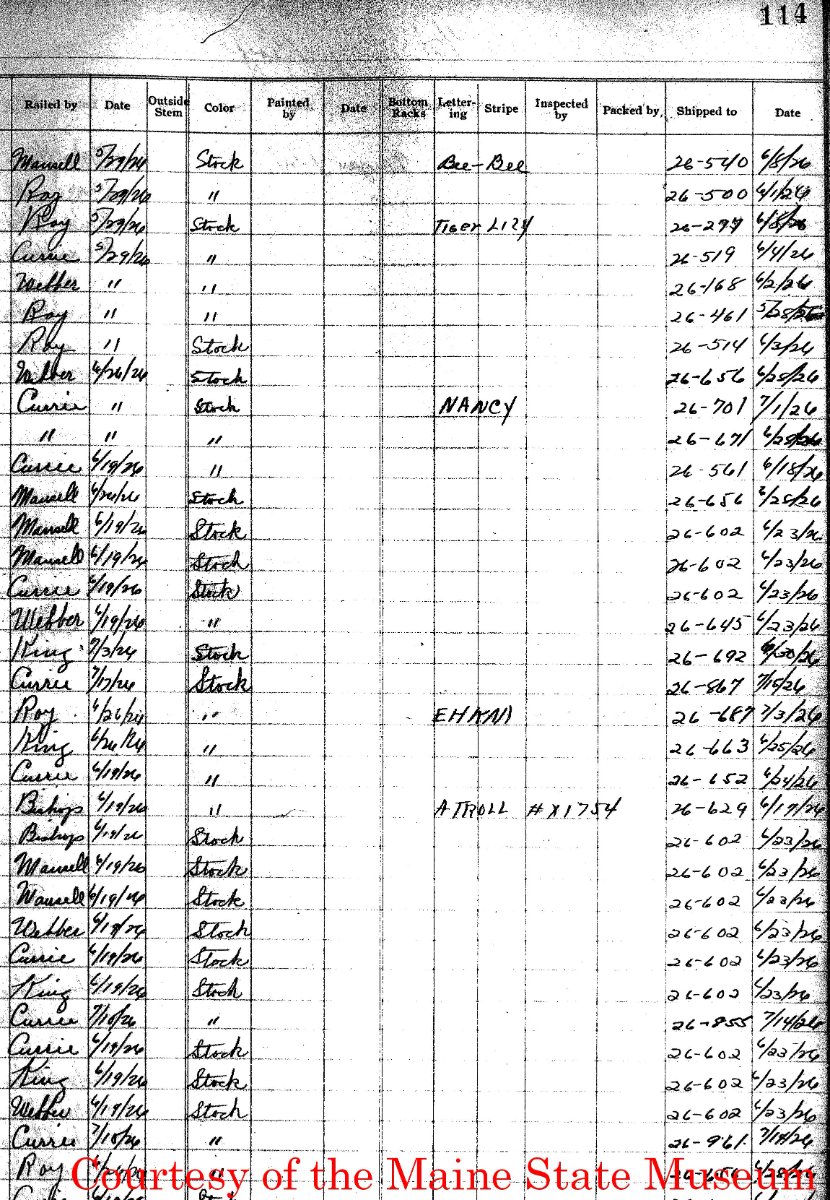 114
Railed by Date Outside Stem Color Painted by Date Bottom Racks Letter-ing Stripe Inspected by Packed by Shipped to Date
Mansell 5/29/26 Stock Bee-Bee 26-540 6/8/26
Roy 5/29/26 " 26-500 6/1/26
Roy 5/29/26 Stock Tiger Lily 6/8/26
Currie 5/29/26 " 26-519 6/4/26
Webber " " 26-168 6/2/26
Roy " " 26-461 5/28/26
Roy " Stock 26-514 6/3/26
Webber 6/26/26 Stock 26-656 6/25/26
Currie " Stock NANCY 26-701 7/1/26
" " " 26-671
Currie 6/19/26 " 26-561 6/18/26
Mansell 6/26/26 Stock 26-656 6/25/26
Mansell 6/19/26 Stock 26-602 6/23/26
Mansell 6/19/26 Stock 26-602 6/23/26
Currie 6/19/26 Stock 26-602 6/23/26
Webber 6/19/26 " 26-645 6/23/26
King 7/3/26 Stock 26-692
Currie 7/17/26 Stock 26-867 7/15/26
Roy 6/26/26 " 26-687 7/3/26
King 6/26/26 " 26-663 6/25/26
Currie 6/19/26 " 26-652 6/24/26
Bishop 6/19/26 " ATROLL #X1754 26-629 6/17/26
Bishop 6/19/26 Stock 26-602 6/23/26
Mansell 6/19/26 Stock 26-602 6/23/26
Mansell 6/19/26 Stock 26-602 6/23/26
Webber 6/19/26 Stock 26-602 6/23/26
Currie 6/19/26 Stock 26-602 6/23/26
King 6/19/26 Stock 26-602 6/23/26
Currie 7/10/26 " 26-855 7/14/26
Currie 6/19/26 Stock 26-602 6/23/26
King 6/19/26 Stock 26-602 6/23/26
Webber 6/19/26 Stock 26-602 6/23/26
Currie 7/10/26 " 26-961
Roy 6/26/26 "
Courtesy of the Maine State Museum